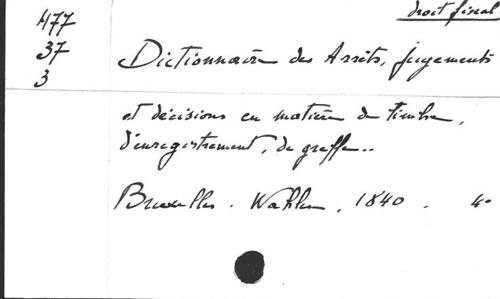 droit fiscal
477
37
3
Dictionnaire des Arrêts, jugements
et décisions en matière de timbre,
d'enregistrement, de greffe..
Bruxelles. Wahlen, 1840. 4°